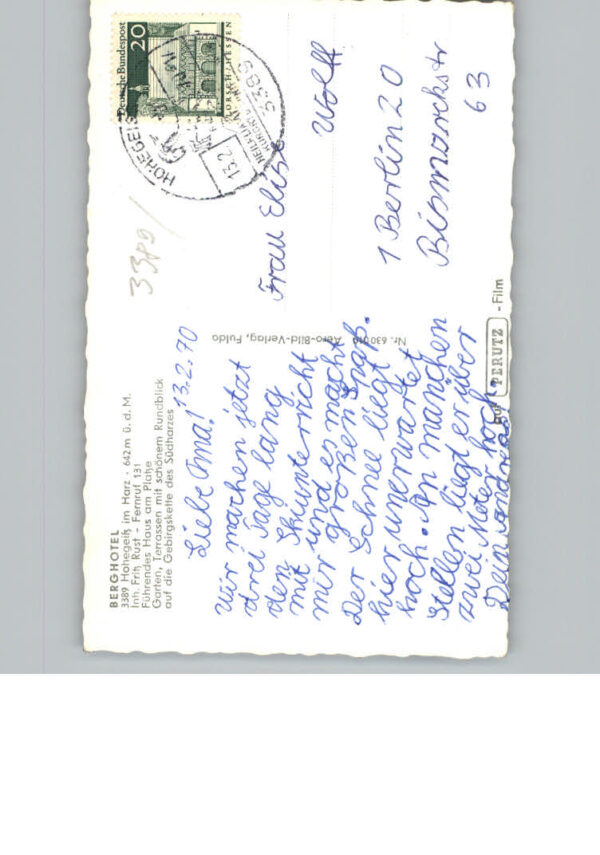 BERGHOTEL
3389 Hohegeiß im Harz · 642m ü. d. M.
Inh. Fritz Rust - Fernruf 131
Führendes Haus am Platze
Garten, Terrassen mit schönem Rundblick
auf die Gebirgskette des Südharzes
Liebe Oma! 13.2.70
Wir machen jetzt
drei Tage lang
den Skiunterricht
mit und es macht
mir großen Spaß.
Der Schnee liegt
hier unerwartet
hoch. An manchen
Stellen liegt er über
zwei Meter hoch.
Dein Andreas
Aero-Bild-Verlag, Fulda
Nr.
auf PERUTZ - Film
3389
Deutsche Bundespost
20
LORSCH / HESSEN
HOHEGEISS
13.2
3389
Frau Elise Wolff
1 Berlin 20
Bismarckstr
63